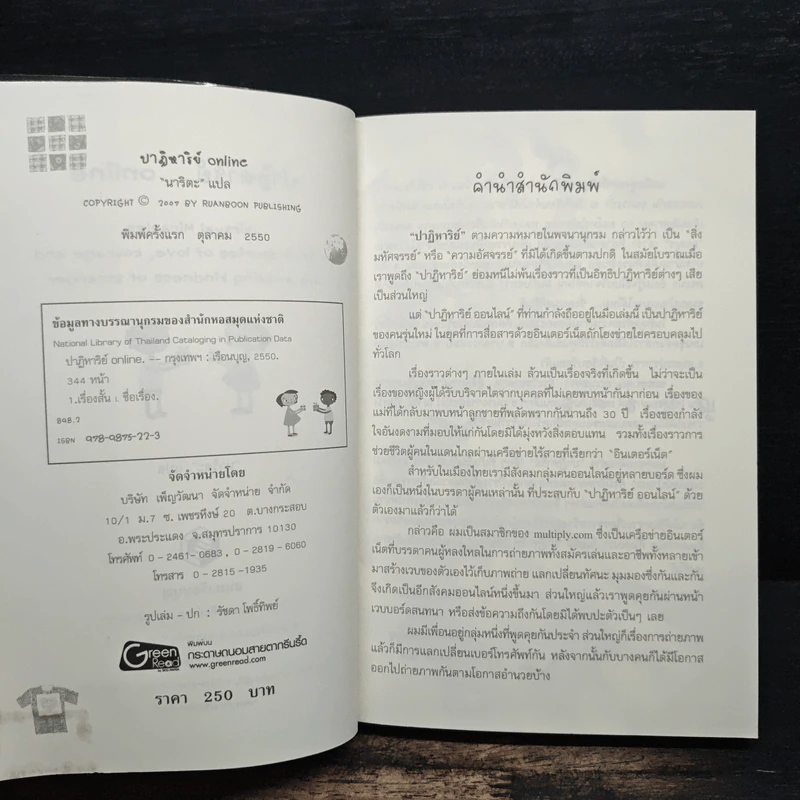 ปาฏิหาริย์ online
"นาริตะ" แปล
COPYRIGHT © 2007 BY RUANBOON PUBLISHING
พิมพ์ครั้งแรก ตุลาคม 2550
ข้อมูลทางบรรณานุกรมของสำนักหอสมุดแห่งชาติ
National Library of Thailand Cataloging in Publication Data
ปาฏิหาริย์ online. -- กรุงเทพฯ : เรือนบุญ, 2550.
344 หน้า
1.เรื่องสั้น I. ชื่อเรื่อง.
898.7
ISBN 978-9875-22-3
จัดจำหน่ายโดย
บริษัท เพ็ญวัฒนา จัดจำหน่าย จำกัด
10/1 ม.7 ซ. เพชรหึงษ์ 20 ต.บางกระสอบ
อ.พระประแดง จ.สมุทรปราการ 10130
โทรศัพท์ 0-2461-0683, 0-2819-6060
โทรสาร 0-2815-1935
รูปเล่ม - ปก : รัชดา โพธิ์ทิพย์
Green Read
พิมพ์บน
กระดาษถนอมสายตากรีนรี้ด
www.greenread.com
ราคา 250 บาท
คำนำสำนักพิมพ์
"ปาฏิหาริย์" ตามความหมายในพจนานุกรม กล่าวไว้ว่า เป็น "สิ่ง
มหัศจรรย์" หรือ "ความอัศจรรย์" ที่มิได้เกิดขึ้นตามปกติ ในสมัยโบราณเมื่อ
เราพูดถึง "ปาฏิหาริย์" ย่อมหนีไม่พ้นเรื่องราวที่เป็นอิทธิปาฏิหาริย์ต่างๆ เสีย
เป็นส่วนใหญ่
แต่ "ปาฏิหาริย์ ออนไลน์" ที่ท่านกำลังถืออยู่ในมือเล่มนี้ เป็นปาฏิหาริย์
ของคนรุ่นใหม่ ในยุคที่การสื่อสารด้วยอินเตอร์เน็ตถักโยงข่ายใยครอบคลุมไป
ทั่วโลก
เรื่องราวต่างๆ ภายในเล่ม ล้วนเป็นเรื่องจริงที่เกิดขึ้น ไม่ว่าจะเป็น
เรื่องของหญิงผู้ได้รับบริจาคไตจากบุคคลที่ไม่เคยพบหน้ากันมาก่อน เรื่องของ
แม่ที่ได้กลับมาพบหน้าลูกชายที่พลัดพรากกันนานถึง 30 ปี เรื่องของกำลัง
ใจอันงดงามที่มอบให้แก่กันโดยมิได้มุ่งหวังสิ่งตอบแทน รวมทั้งเรื่องราวการ
ช่วยชีวิตผู้คนในแดนไกลผ่านเครือข่ายไร้สายที่เรียกว่า "อินเตอร์เน็ต"
สำหรับในเมืองไทยเรามีสังคมกลุ่มคนออนไลน์อยู่หลายบอร์ด ซึ่งผม
เองก็เป็นหนึ่งในบรรดาผู้คนเหล่านั้น ที่ประสบกับ "ปาฏิหาริย์ ออนไลน์" ด้วย
ตัวเองมาแล้วก็ว่าได้
กล่าวคือ ผมเป็นสมาชิกของ multiply.com ซึ่งเป็นเครือข่ายอินเตอร์
เน็ตที่บรรดาคนผู้หลงใหลในการถ่ายภาพทั้งสมัครเล่นและอาชีพทั้งหลายเข้า
มาสร้างเวบของตัวเองไว้เก็บภาพถ่าย แลกเปลี่ยนทัศนะ มุมมองซึ่งกันและกัน
จึงเกิดเป็นอีกสังคมออนไลน์หนึ่งขึ้นมา ส่วนใหญ่แล้วเราพูดคุยกันผ่านหน้า
เวบบอร์ดสนทนา หรือส่งข้อความถึงกันโดยมิได้พบปะตัวเป็นๆ เลย
ผมมีเพื่อนอยู่กลุ่มหนึ่งที่พูดคุยกันประจำ ส่วนใหญ่ก็เรื่องการถ่ายภาพ
แล้วก็มีการแลกเปลี่ยนเบอร์โทรศัพท์กัน หลังจากนั้นกับบางคนก็ได้มีโอกาส
ออกไปถ่ายภาพกันตามโอกาสอำนวยบ้าง